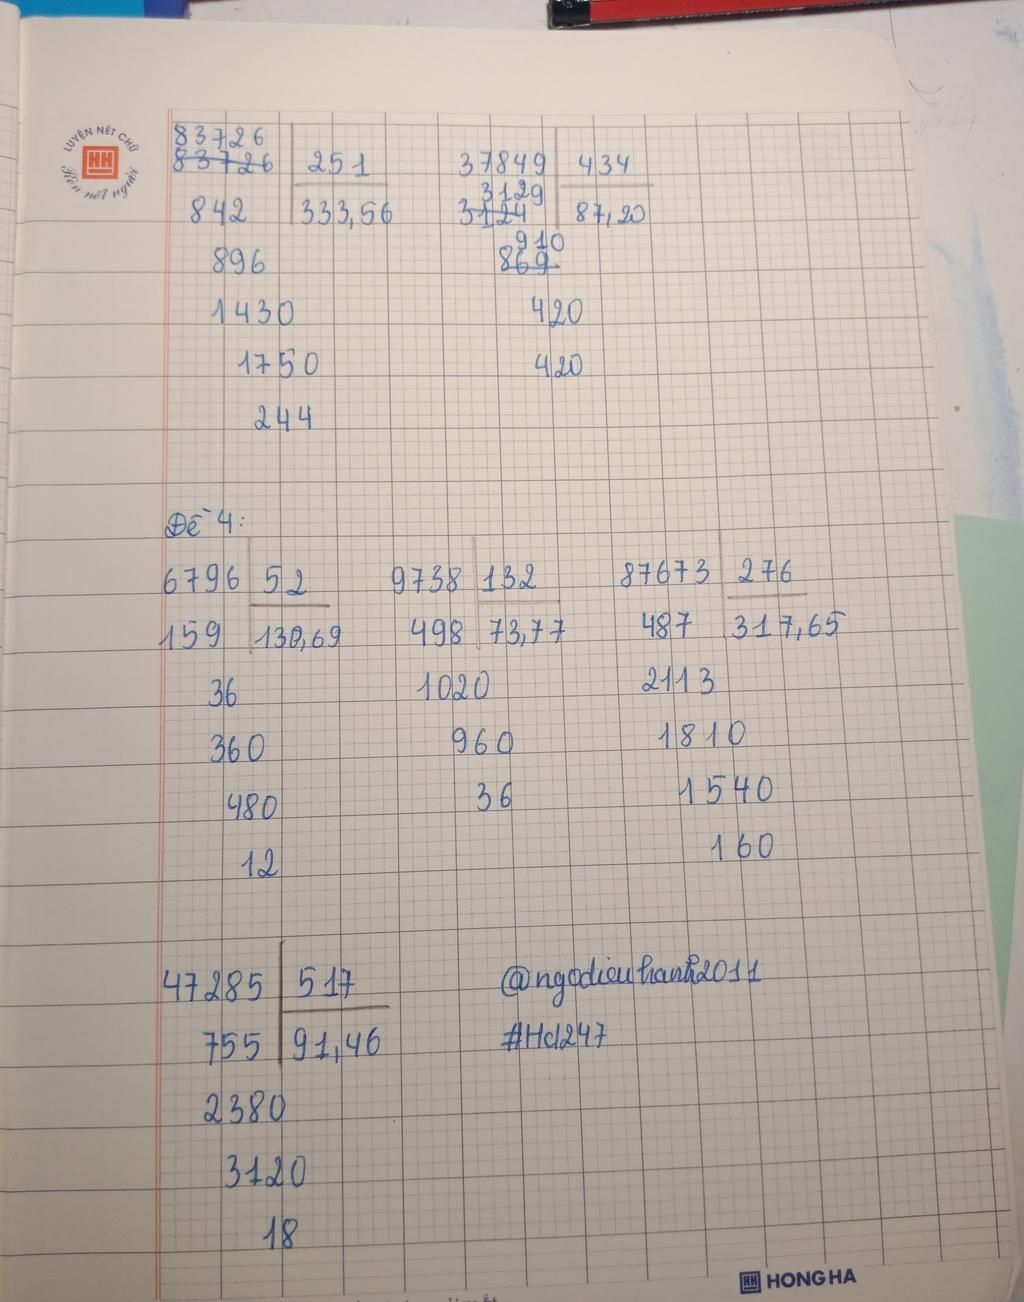 LUYỆN NÉT CHỮ
HH
Rèn nết người
83726
83726 251 37849 434
3129
842 333,56 3124 87,20
910
896 869
1430 420
1750 420
244
Đề 4:
6796 52 9738 132 87673 276
159 130,69 498 73,77 487 317,65
36 1020 2113
360 960 1810
480 36 1540
12 160
47285 517 @ngodieuhanh2011
755 91,46 #Hd247
2380
3120
18
HH HONG HA